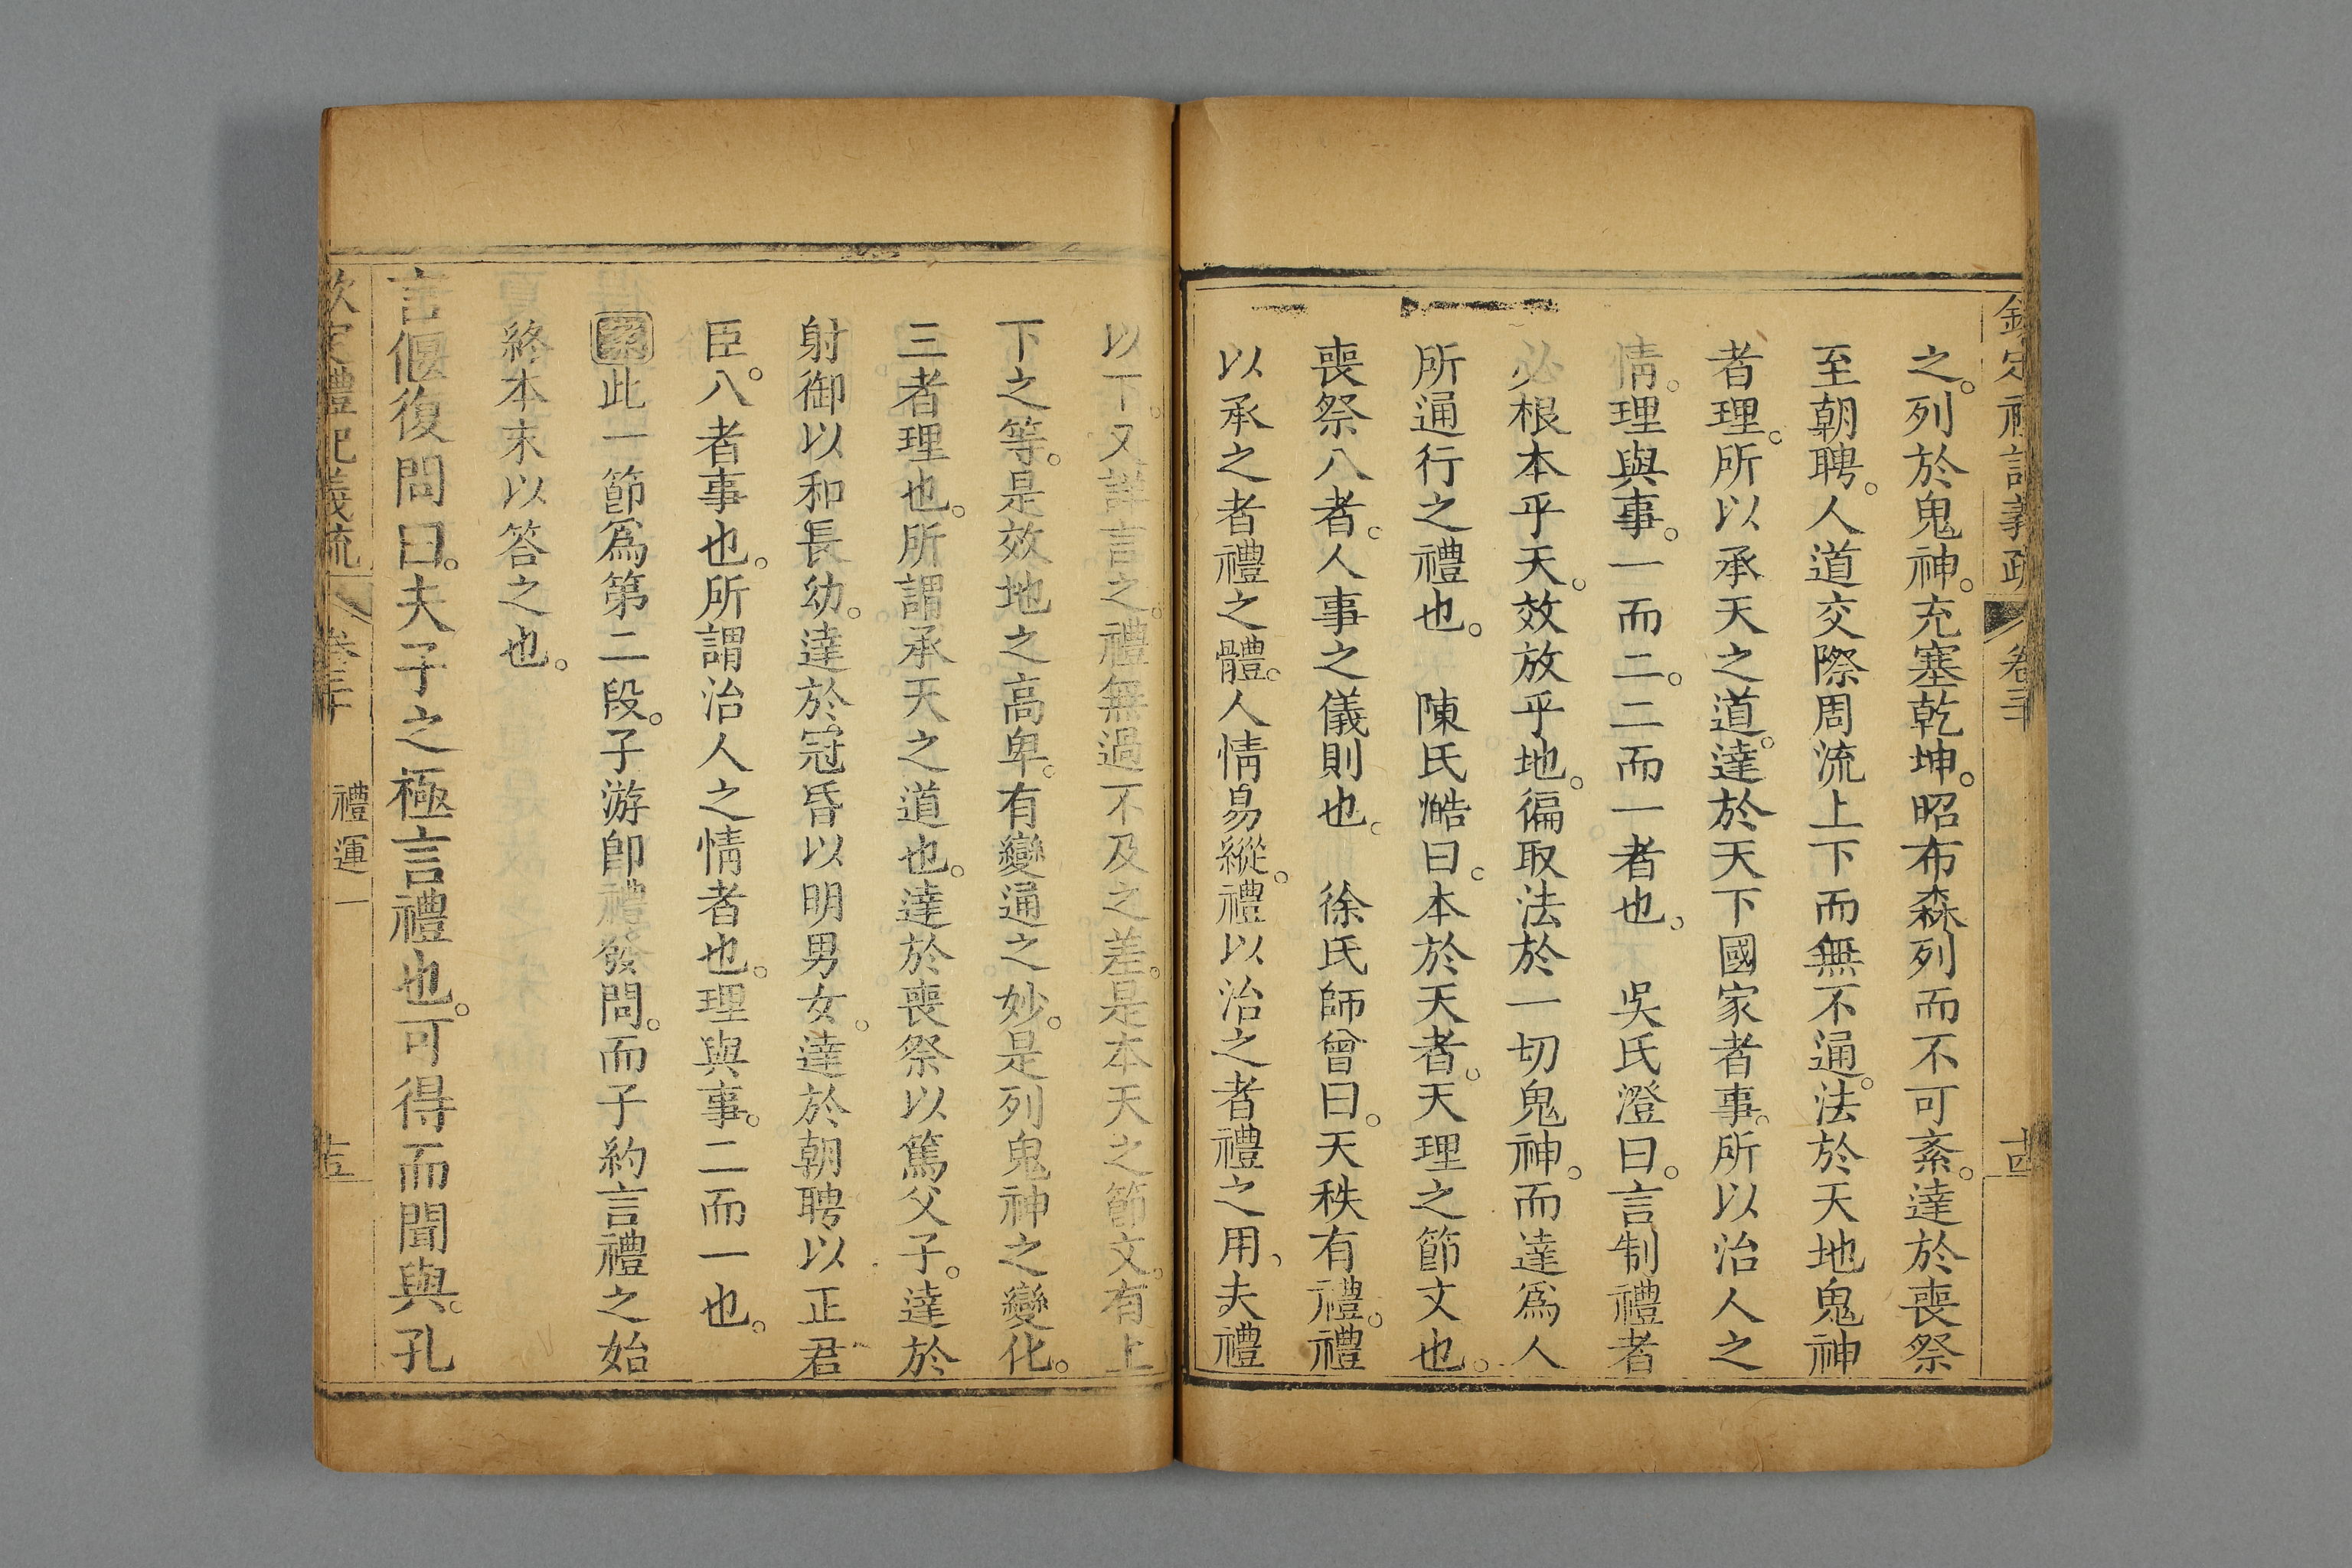 欽定禮記義疏 卷三十 十四
之。列於鬼神。充塞乾坤。昭布森列而不可紊。達於喪祭
至朝聘。人道交際周流上下而無不通。法於天地鬼神
者理。所以承天之道。達於天下國家者事。所以治人之
情。理與事。一而二。二而一者也。 吳氏澄曰。言制禮者
必根本乎天。效放乎地。徧取法於一切鬼神。而達爲人
所通行之禮也。 陳氏澔曰。本於天者。天理之節文也。
喪祭八者。人事之儀則也。 徐氏師曾曰。天秩有禮。禮
以承之者禮之體。人情易縱。禮以治之者禮之用、夫禮
以下。又詳言之。禮無過不及之差。是本天之節文。有上
下之等。是效地之高卑。有變通之妙。是列鬼神之變化。
三者理也。所謂承天之道也。達於喪祭以篤父子。達於
射御以和長幼。達於冠昏以明男女。達於朝聘以正君
臣。八者事也。所謂治人之情者也。理與事。二而一也。
案此一節爲第二段。子游卽禮發問。而子約言禮之始
終本末以答之也。
言偃復問曰。夫子之極言禮也。可得而聞與。孔
欽定禮記義疏 卷三十 禮運一 十五